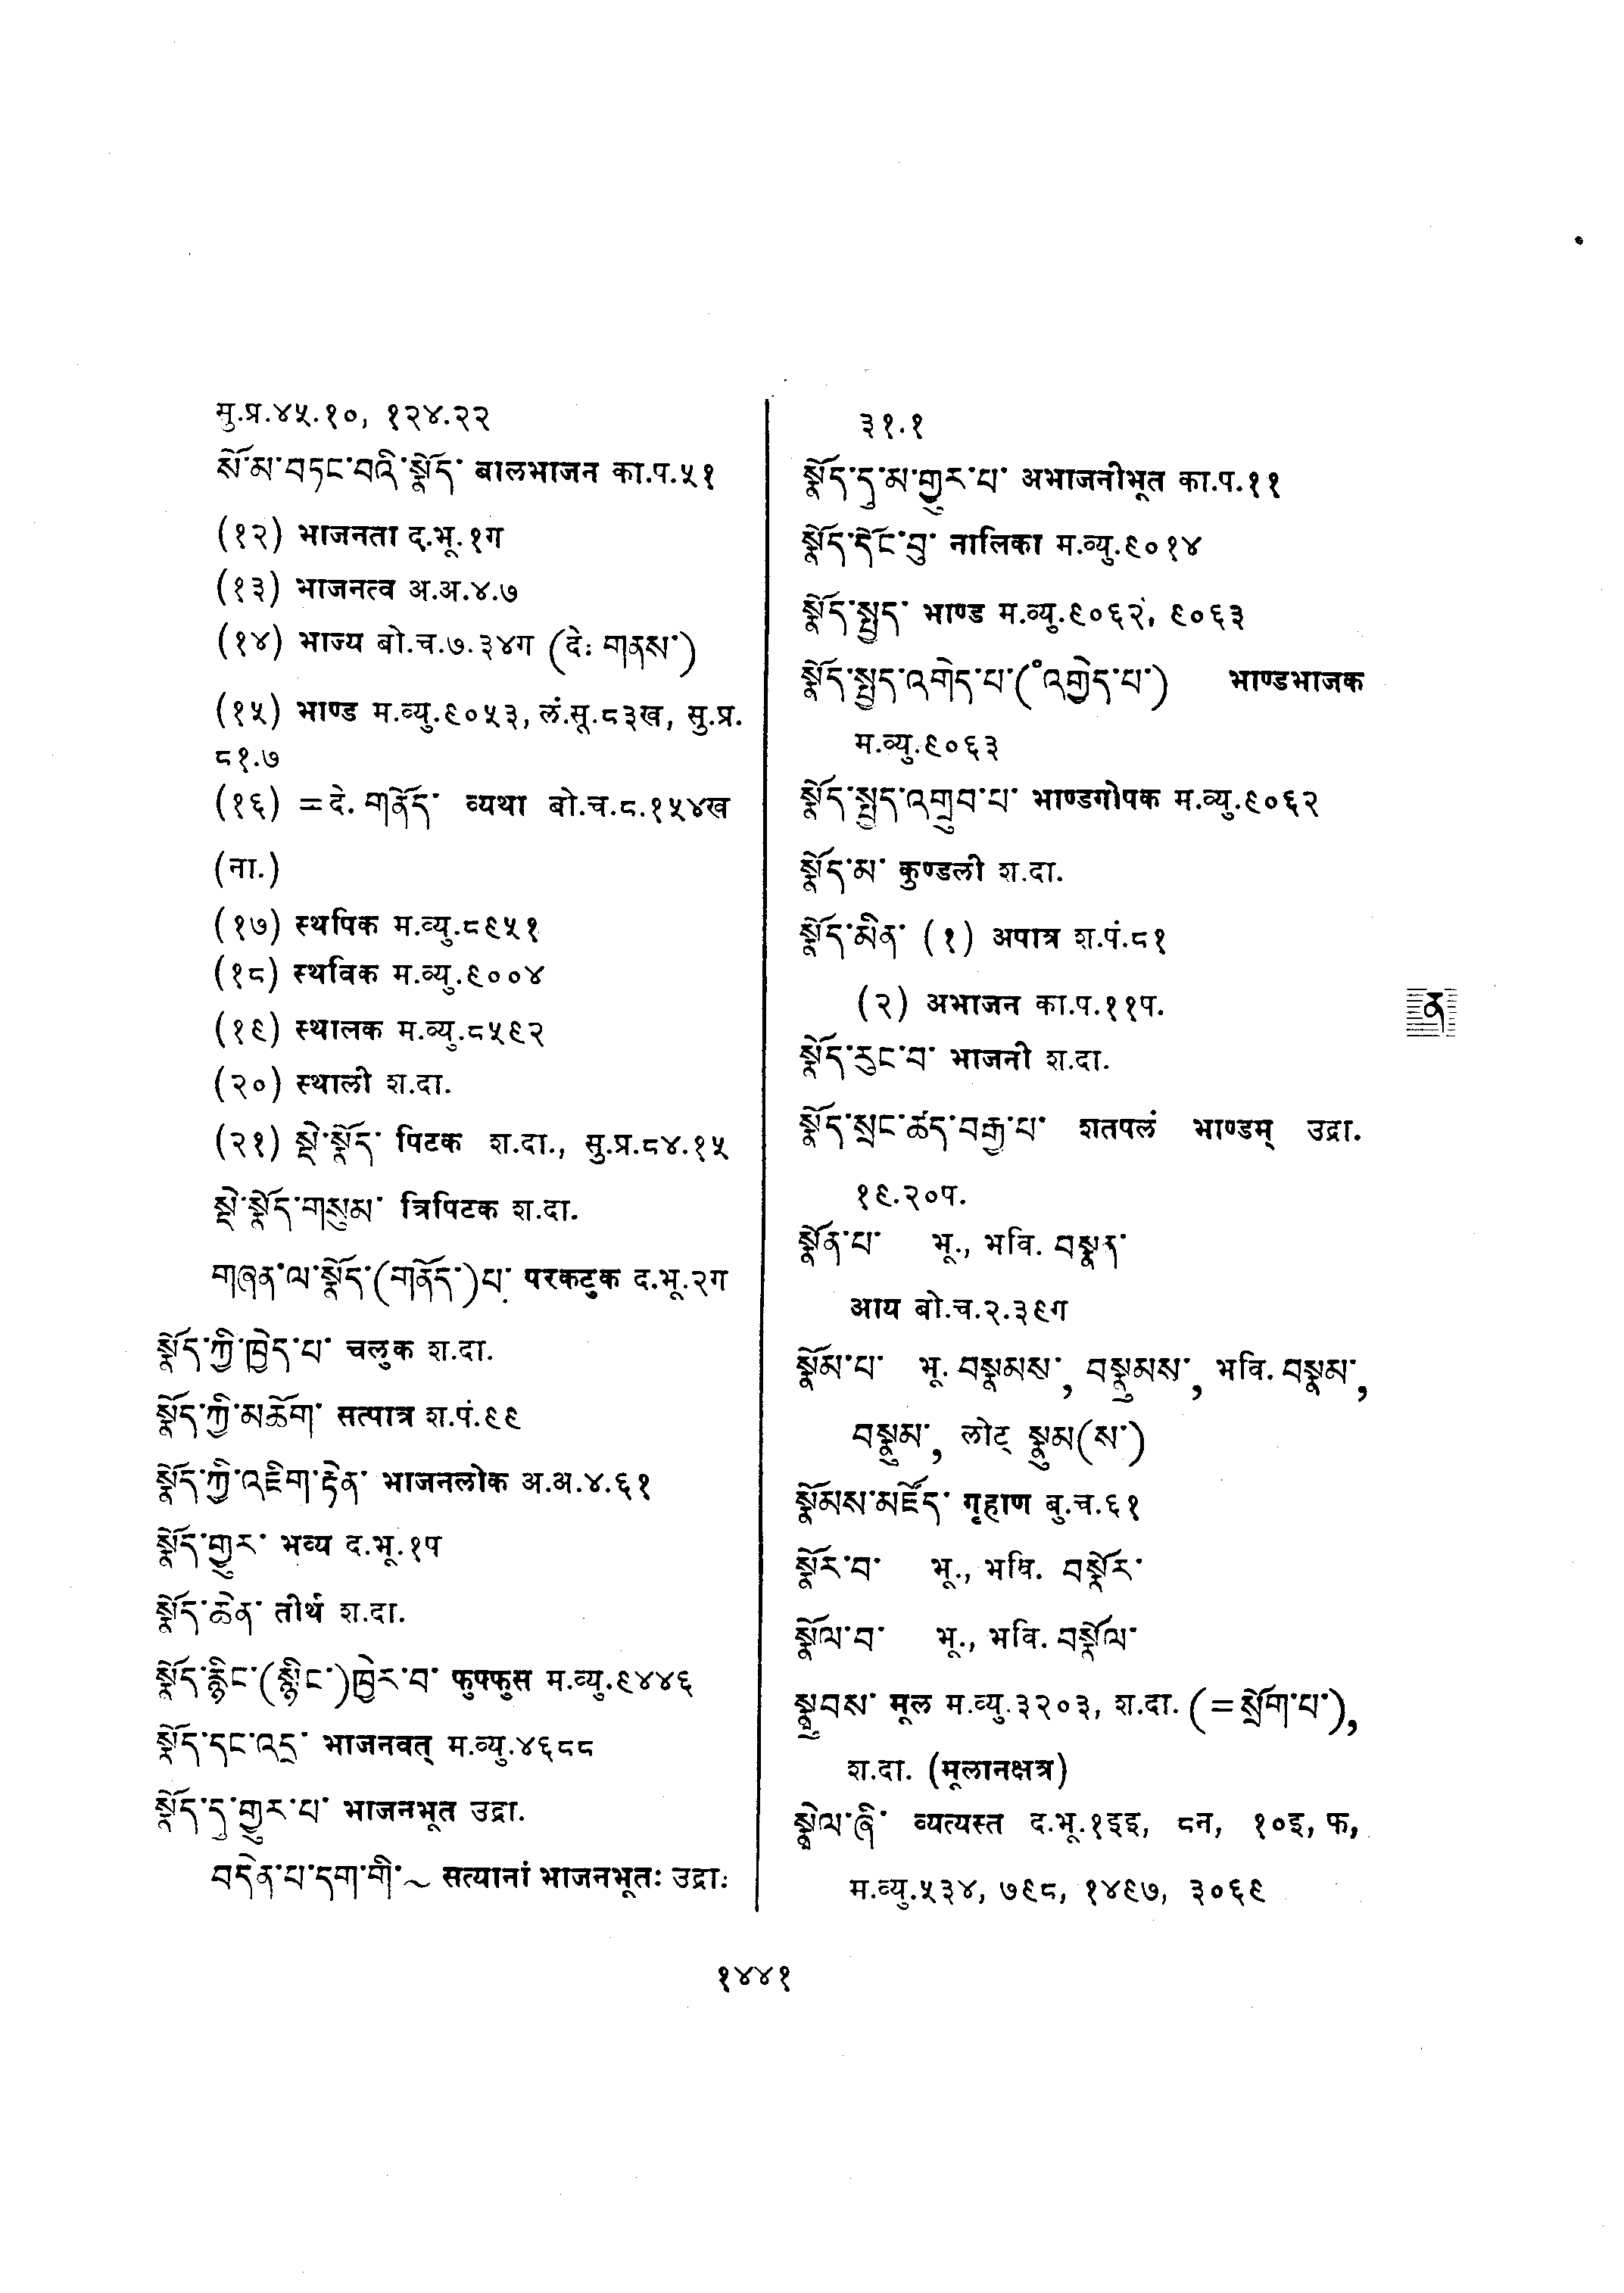 मु.प्र.४५.१०, १२४.२२
སོ་མ་བཏང་བའི་སྣོད་ बालभाजन का.प.५१
(१२) भाजनता द.भू.१ग
(१३) भाजनत्व अ.अ.४.७
(१४) भाज्य बो.च.७.३४ग (दे: གནས་)
(१५) भाण्ड म.व्यु.९०५३, लं.सू.८३ख, सु.प्र.
८१.७
(१६) =दे. གནོད་ व्यथा बो.च.८.१५४ख
(ना.)
(१७) स्थपिक म.व्यु.८९५१
(१८) स्थविक म.व्यु.९००४
(१९) स्थालक म.व्यु.८५९२
(२०) स्थाली श.दा.
(२१) སྡེ་སྣོད་ पिटक श.दा., सु.प्र.८४.१५
སྡེ་སྣོད་གསུམ་ त्रिपिटक श.दा.
གཞན་ལ་སྣོད་(གནོད་)པ་ परकटुक द.भू.२ग
སྣོད་ཀྱི་ཁྱེད་པ་ चलुक श.दा.
སྣོད་ཀྱི་མཆོག་ सत्पात्र श.पं.९९
སྣོད་ཀྱི་འཇིག་རྟེན་ भाजनलोक अ.अ.४.६१
སྣོད་གྱུར་ भव्य द.भू.१प
སྣོད་ཆེན་ तीर्थ श.दा.
སྣོད་རྙིང་(སྙིང་)ཁྱེར་བ་ फुप्फुस म.व्यु.९४४६
སྣོད་དང་འདྲ་ भाजनवत् म.व्यु.४६८८
སྣོད་དུ་གྱུར་པ་ भाजनभूत उद्रा.
བདེན་པ་དག་གི་~ सत्यानां भाजनभूतः उद्रा:
३१.१
སྣོད་དུ་མ་གྱུར་པ་ अभाजनीभूत का.प.११
སྣོད་དོང་བུ་ नालिका म.व्यु.९०१४
སྣོད་སྤྱད་ भाण्ड म.व्यु.९०६२, ९०६३
སྣོད་སྤྱད་འགེད་པ་(°འགྱེད་པ་) भाण्डभाजक
म.व्यु.९०६३
སྣོད་སྤྱད་འགྲུབ་པ་ भाण्डगोपक म.व्यु.९०६२
སྣོད་མ་ कुण्डली श.दा.
སྣོད་མིན་ (१) अपात्र श.पं.८१
(२) अभाजन का.प.११प.
ན
སྣོད་རུང་བ་ भाजनी श.दा.
སྣོད་སྲང་ཚད་བརྒྱ་པ་ शतपलं भाण्डम् उद्रा.
१९.२०प.
སྣོན་པ་ भू., भवि. བསྣན་
आय बो.च.२.३९ग
སྣོམ་པ་ भू. བསྣམས་, བསྣུམས་, भवि. བསྣམ་,
བསྣུམ་, लोट् སྣུམ(ས་)
སྣོམས་མཛོད་ गृहाण बु.च.६१
སྣོར་བ་ भू., भवि. བསྣོར་
སྣོལ་བ་ भू., भवि. བསྣོལ་
སྣྲུབས་ मूल म.व्यु.३२०३, श.दा. (=སྲོག་པ་),
श.दा. (मूलानक्षत्र)
སྣྲེལ་ཞི་ व्यत्यस्त द.भू.१इइ, ८न, १०इ, फ,
म.व्यु.५३४, ७९८, १४९७, ३०६९
१४४१